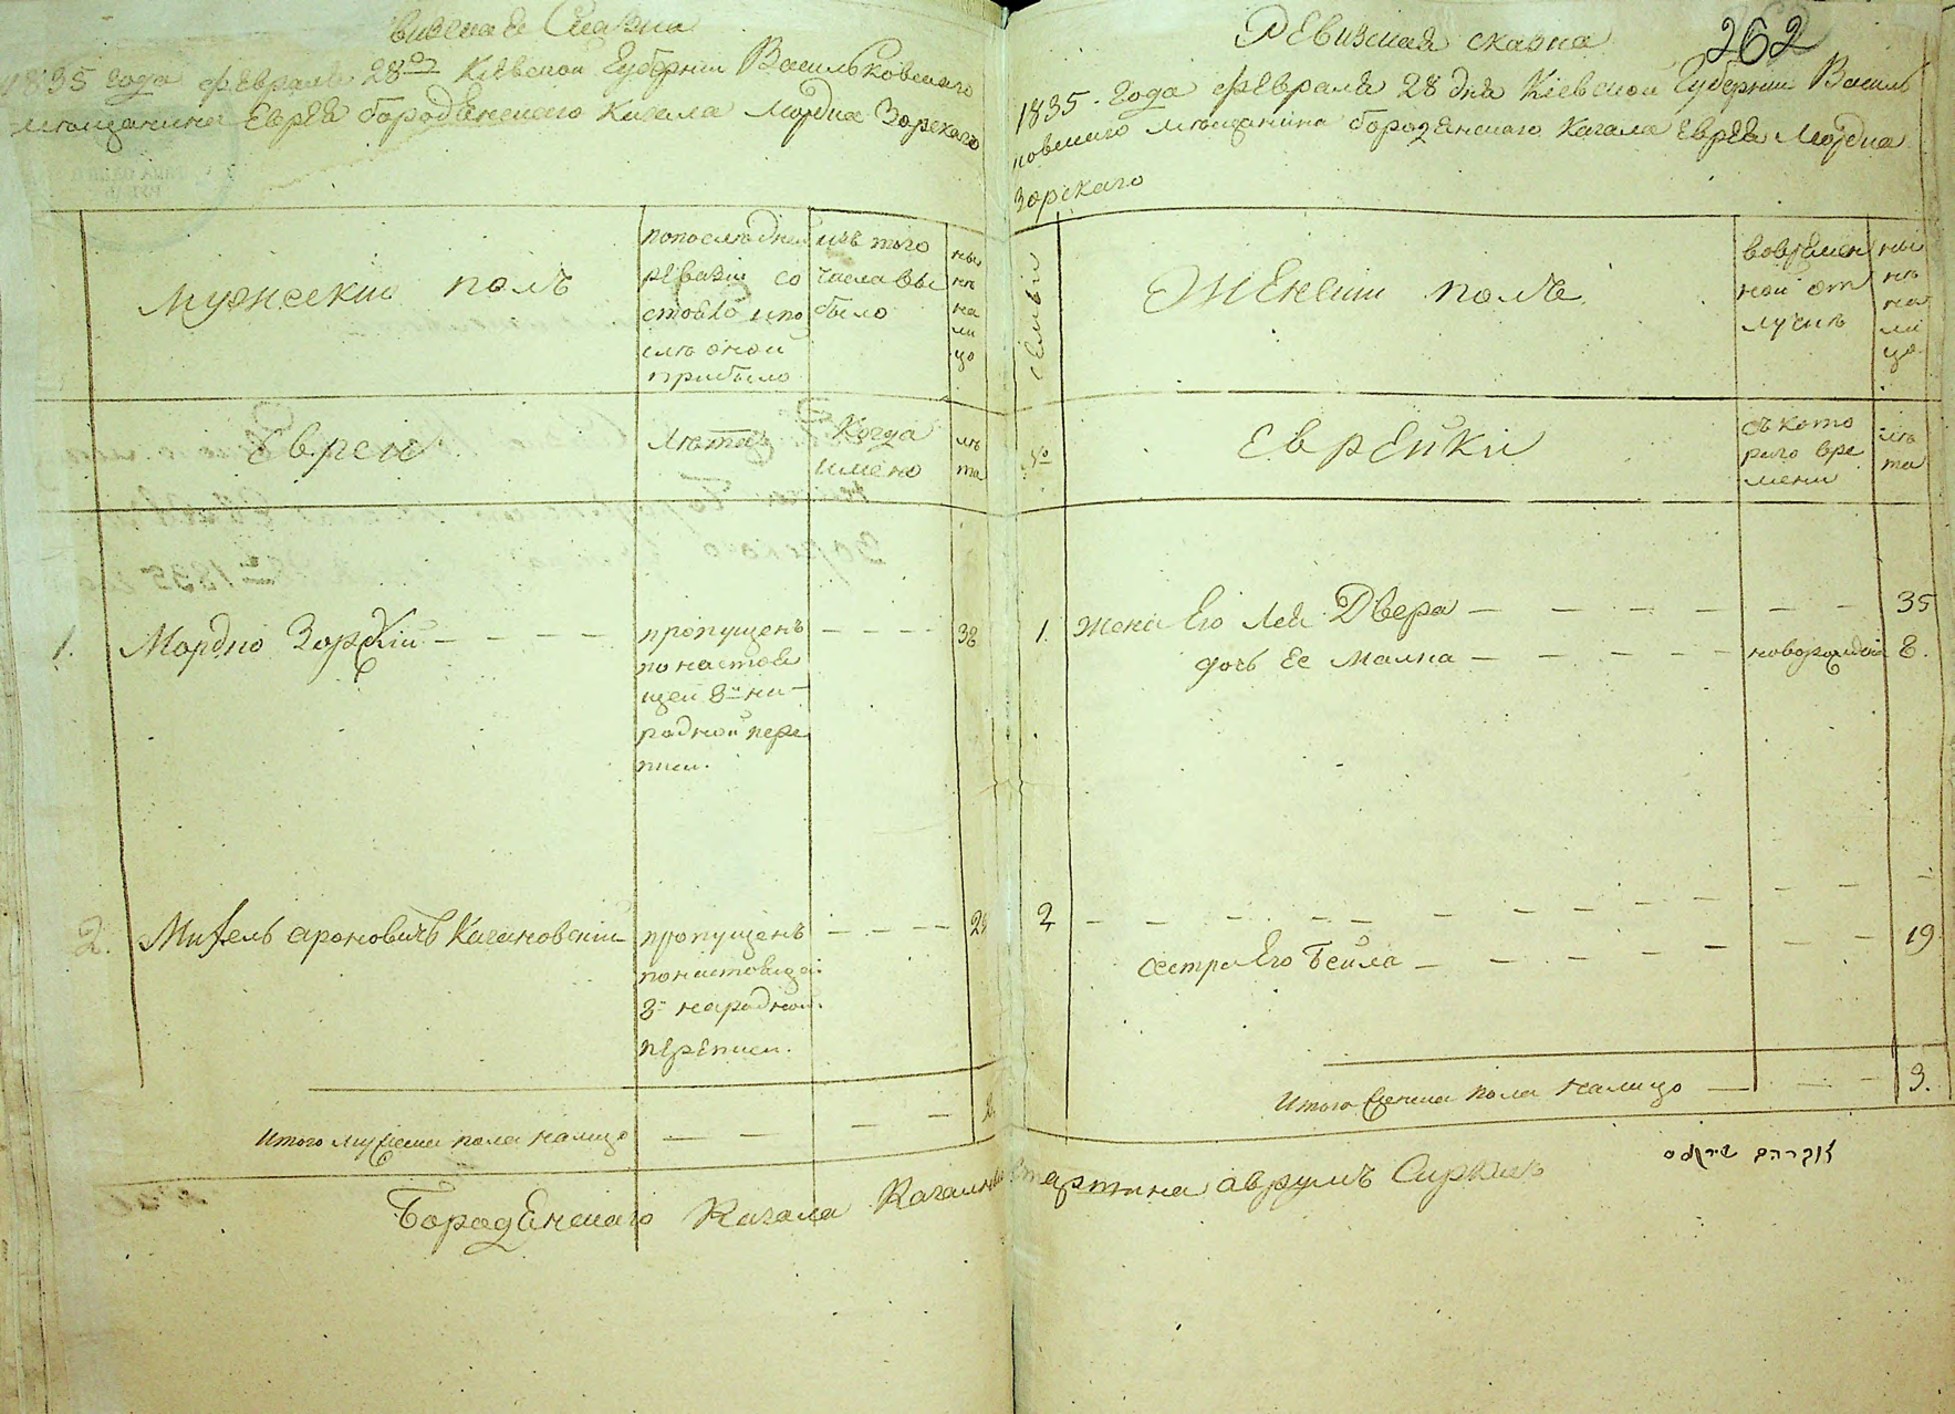 Ревизская Сказка
1835 года февраля 28го Киевской Губернии Васильковскаго
мещанина Еврея бородянскаго Кагала Мордка Зорскаго
мужеский полъ
по последней
ревизии со
стояло и по
сле оной
прибыло
изъ того
числа вы
было
ны
не
на
ли
цо
Евреи
Лета
Когда
имено
ле
та
1.
Мордко Зорский
пропущенъ
по настоя
щей 8й на-
родной пере
писи.
38
2.
Ароновичъ Кагановский
пропущенъ
по настоящей
8й народной
переписи.
Итого мужеска пола налицо
2
262
Ревизская сказка
1835 года февраля 28 дня Киевской Губернии Василь
ковскаго мещанина бородянскаго Кагала Еврея Мордка
Зорскаго
семьи
№
Женский полъ
во времен
ной от
лучке
ны
не
на
ли
цо
Еврейки
съ кото
раго вре
мени
ле
та
1.
Жена Его Лея Двера
35
дочь Ее Малка
8.
2
сестра Его Бейла
19
Итого женска пола налицо
3.
אברהם שירקיס
Бородянскаго Кагала Аврумъ Сиркисъ